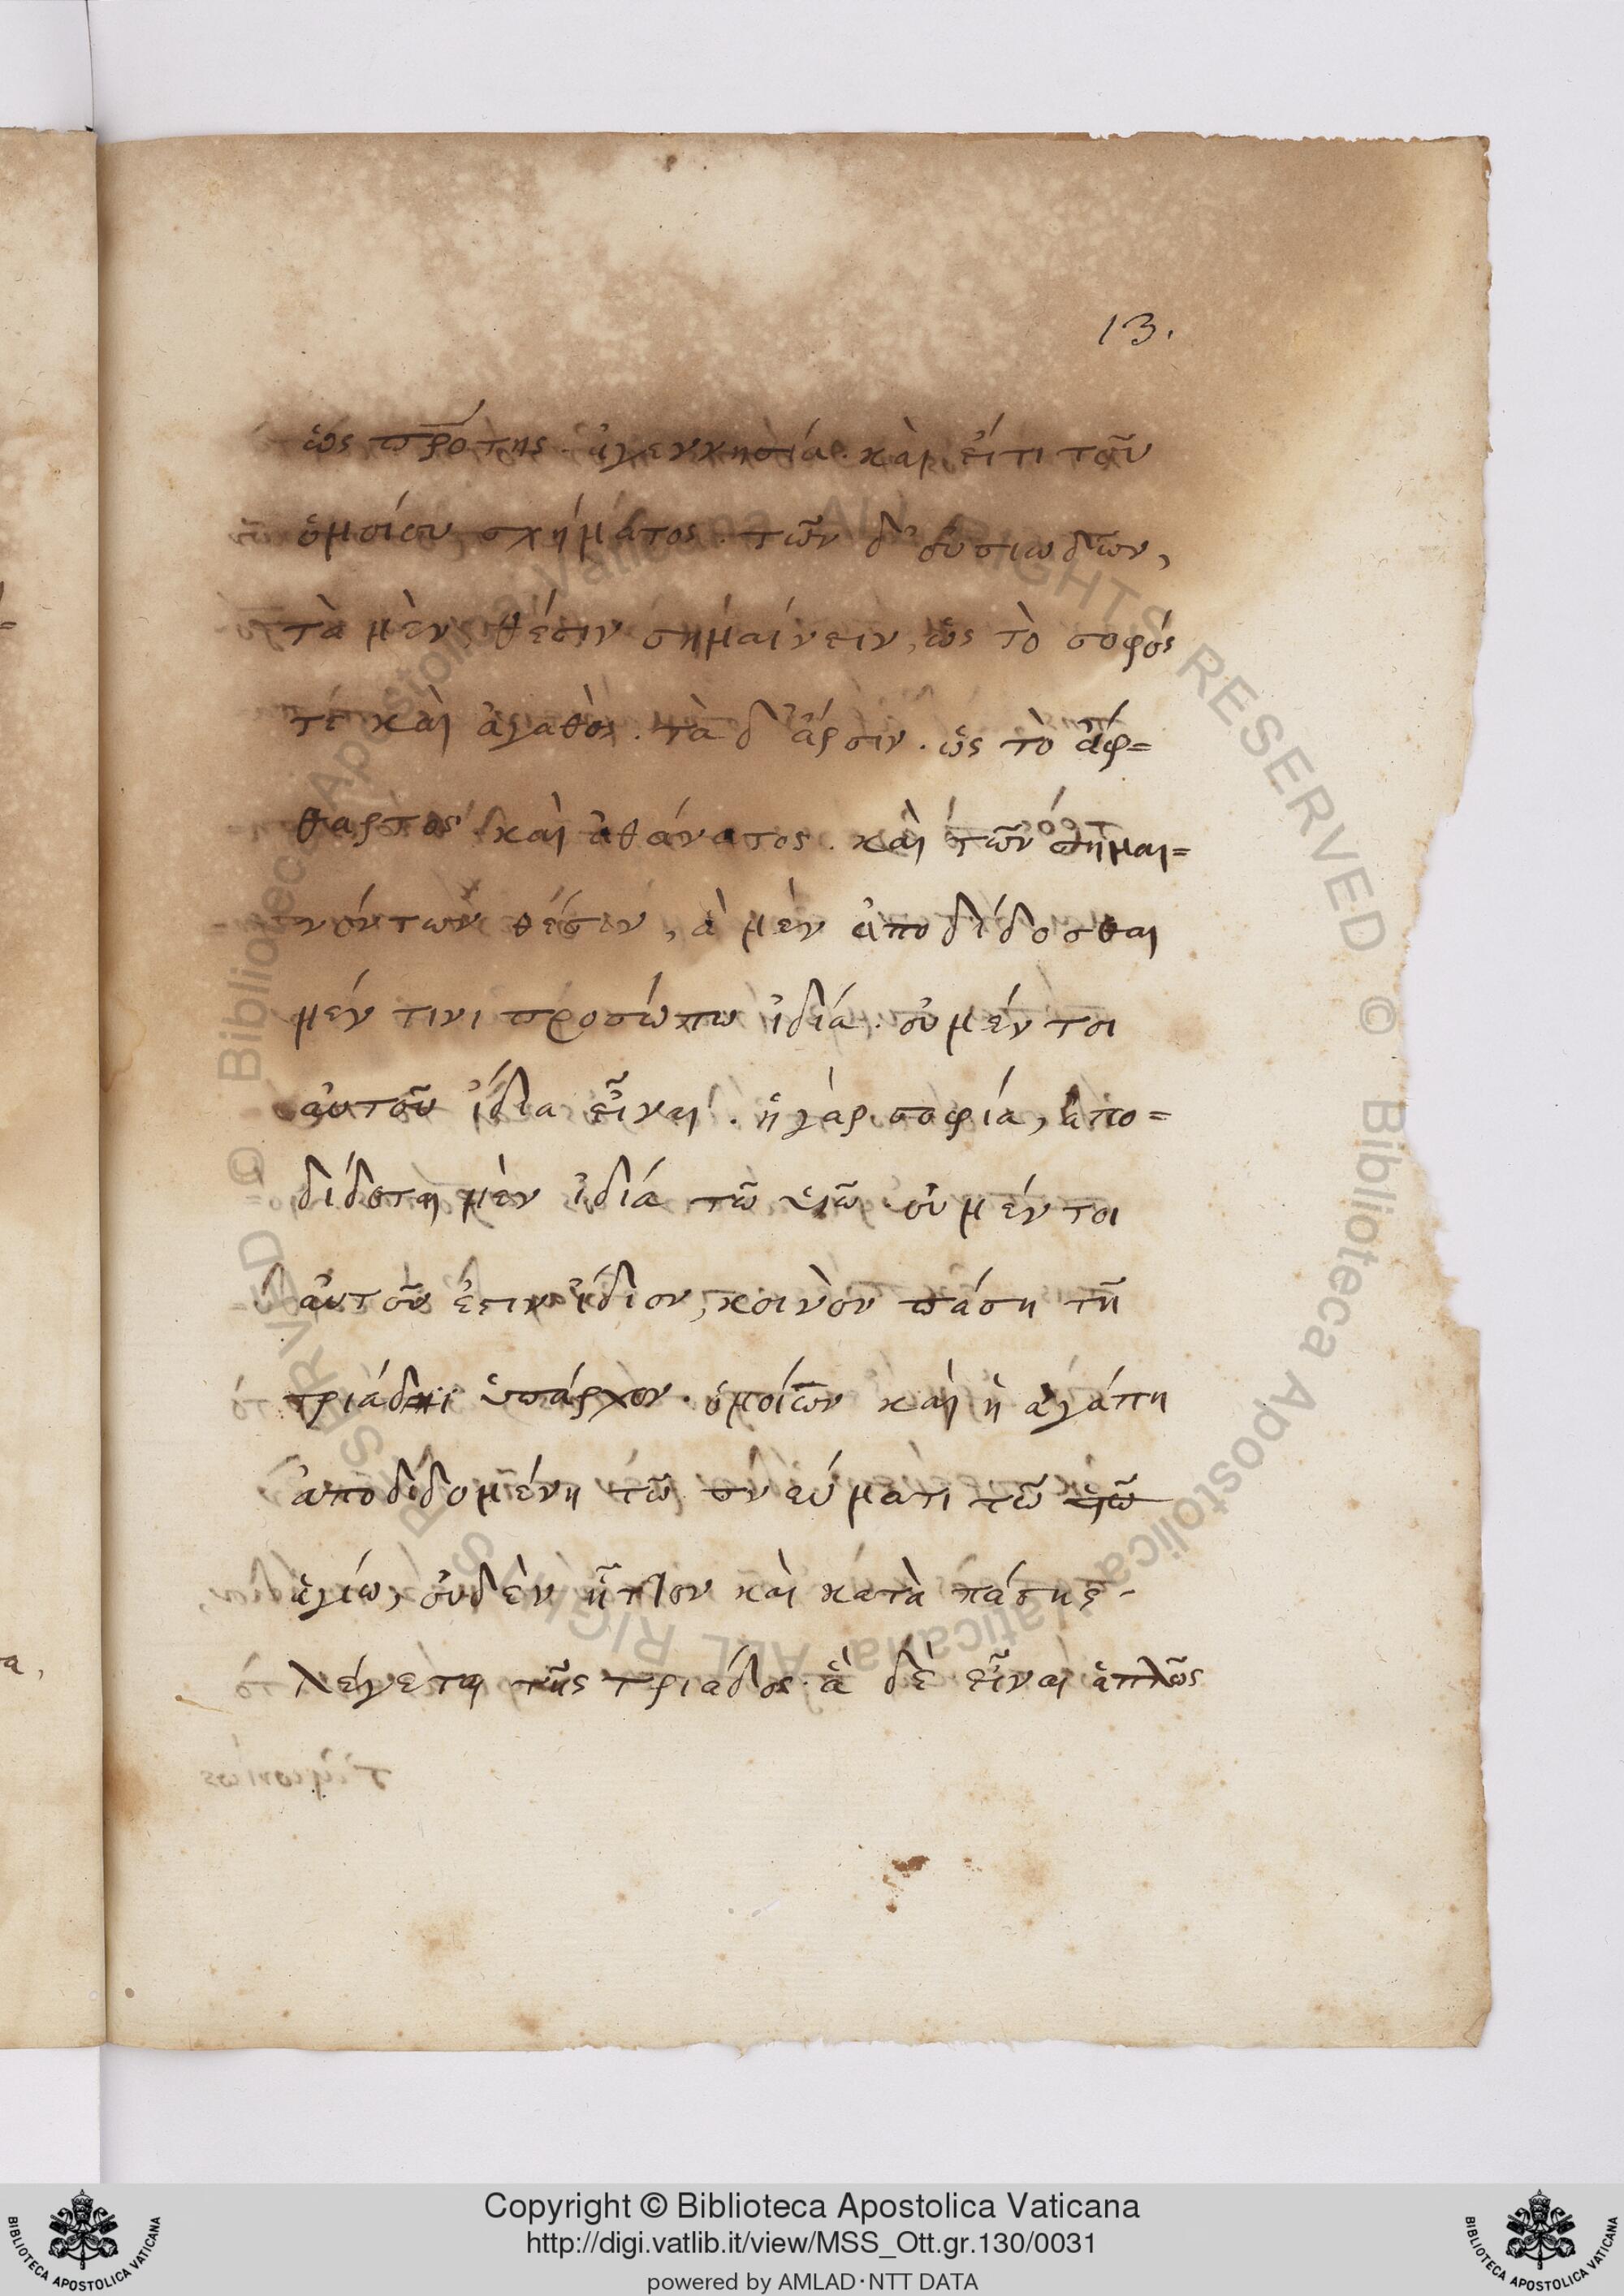 13.
ὡς πρότης. ἀγεννησία. καὶ εἴ τι τοῦ
ὁμοίου σχήματος. τῶν δ' οὐσιωδῶν,
τὰ μὲν θέσιν σημαίνειν, ὡς τὸ σοφός
τὲ καὶ ἀγαθὸς. τὰ δ' ἄρσιν. ὡς τὸ ἄφ=
θαρτος καὶ ἀθάνατος. καὶ τῶν σημαι=
νόντων θέσιν, ἃ μὲν ἀποδίδοσθαι
μέν τινι προσώπω ἰδία. οὐ μέν τοι
αὐτοῦ ἴδια εἶναι. ἡ γὰρ σοφία, ἀπο=
δίδοται μὲν ἰδία τῶ υἱῶ. οὐ μέν τοι
αὐτοῦ ἐστιν ἴδιον, κοινὸν πάση τῆ
τριάδι ὑπάρχον. ὁμοίων καὶ ἡ ἀγάπη
ἀποδιδομένη τῶ πνεύματι τῶ
ἁγίω, οὐδὲν ἧττον καὶ κατὰ πάσης
λέγεται τῆς τριάδος. ἃ δὲ εἶναι ἁπλῶς
Copyright © Biblioteca Apostolica Vaticana
http://digi.vatlib.it/view/MSS_Ott.gr.130/0031
powered by AMLAD·NTT DATA
BIBLIOTECA APOSTOLICA VATICANA
BIBLIOTECA APOSTOLICA VATICANA
© Biblioteca Apostolica Vaticana ALL RIGHTS RESERVED
© Biblioteca Apostolica Vaticana ALL RIGHTS RESERVED